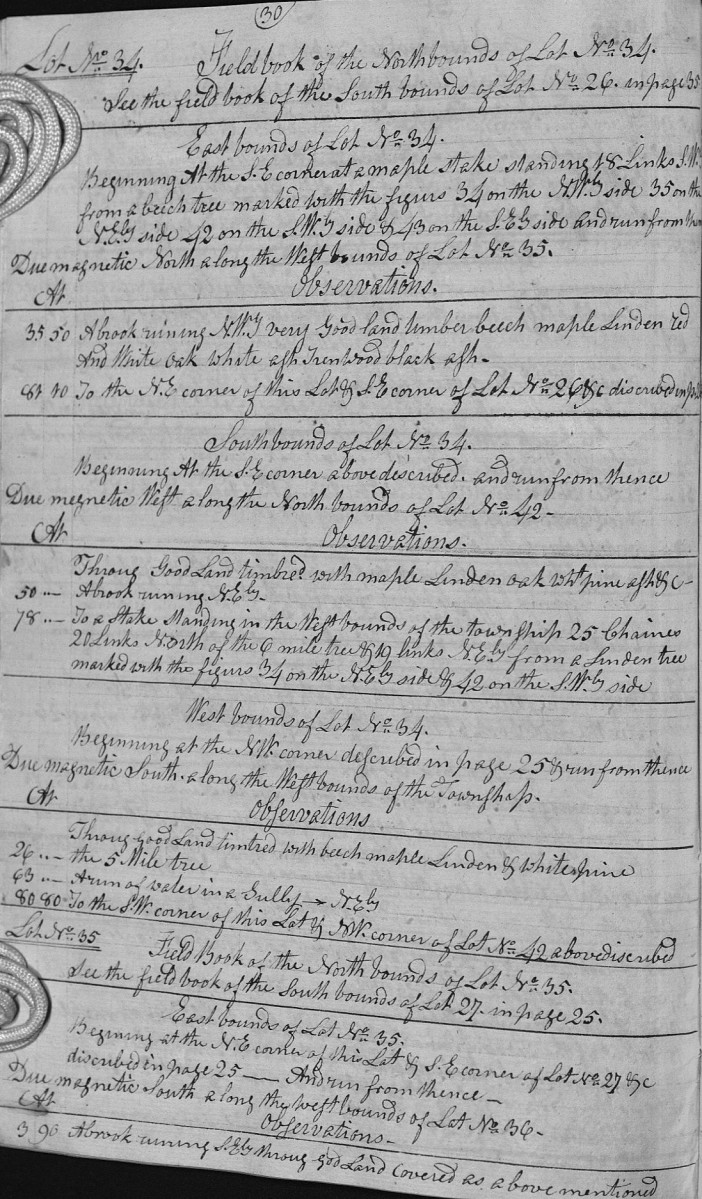 30
Lot No. 34. Field book of the North bounds of Lot No. 34.
See the field book of the South bounds of Lot No. 26. in page 35
East bounds of Lot No. 34.
Beginning At the S. E corner at a maple stake standing 48 Links S.W.
from a beech tree marked with the figurs 34 on the N.W.ly side 35 on the
N.E.ly side 42 on the S.W.ly side & 43 on the S.E.ly side and run from
Due magnetic North along the West bounds of Lot No. 35.
At Observations.
35 50 A brook runing N.W.ly very Good land timber beech maple Linden red
And White oak white ash Irenwood black ash.
81 40 To the N.E corner of this Lot & S.E corner of Lot No. 26 &c discribed in
South bounds of Lot No. 34.
Beginning At the S.E corner above described. and run from thence
Due magnetic West along the North bounds of Lot No. 42.
At Observations.
Throug Good Land timbred with maple Linden oak wht pine ash &c
50 .. A brook runing N.E.ly.
78 .. To a Stake Standing in the West bounds of the township 25 Chains
20 Links North of the 6 mile tree & 19 links N.E.ly from a Linden tree
marked with the figurs 34 on the N.E.ly side & 42 on the S.W.ly side
West bounds of Lot No. 34.
Beginning at the NW. corner described in page 25 & run from thence
Due magnetic South. along the West bounds of the Township.
At Observations
Throug good Land timbred with beech maple Linden & white pine
26 .. the 5 Mile tree
63 .. A run of water in a Gully → N.E.ly
80 80 To the S.W. corner of this Lot & NW. corner of Lot No. 42 above discribed
Lot No. 35 Field Book of the North bounds of Lot No. 35.
See the field book of the South bounds of Lot 27. in page 25.
East bounds of Lot No. 35.
Begining at the N.E corner of this Lot & S.E corner of Lot No. 27 &c
discribed in page 25 — And run from thence —
Due magnetic South along the west bounds of Lot No. 36.
At Observations.
3 90 A brook runing S.E.ly throug good Land covered as above mentioned